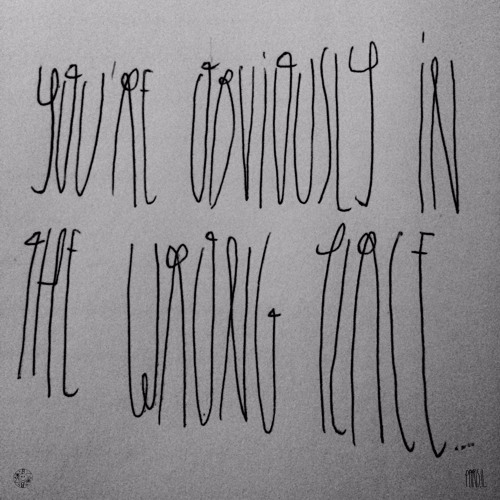 YOU'RE OBVIOUSLY IN
THE WRONG PLACE....